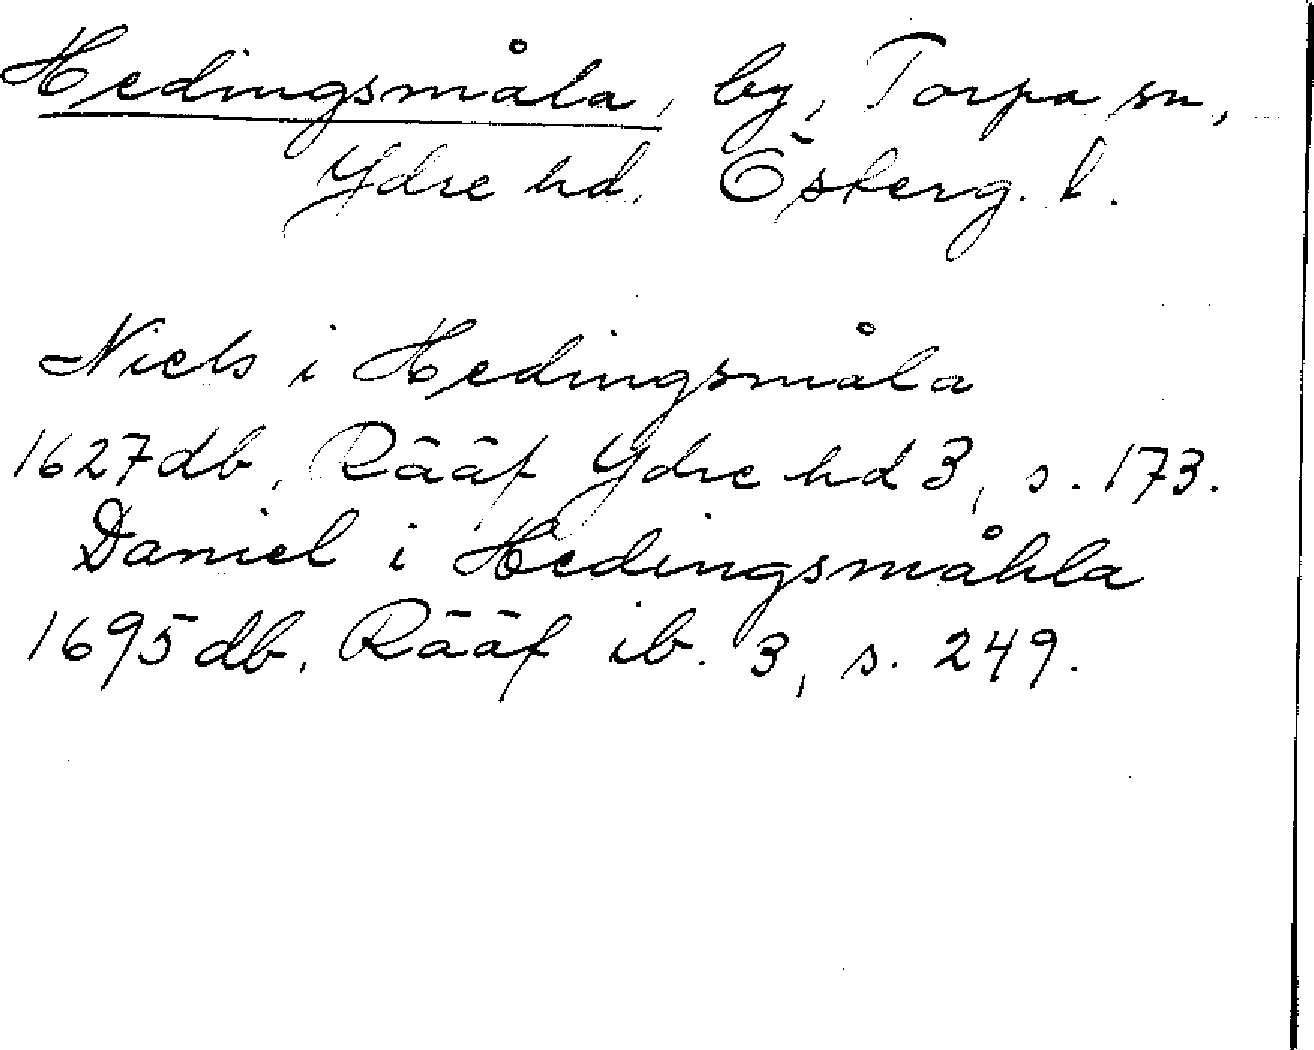 Hedingsmåla, by, Torpa sn,
Ydre hd. Österg. l.
Niels i Hedingsmåla
1627 db, Rääf Ydre hd 3, s. 173.
Daniel i Hedingsmåhla
1695 db. Rääf ib. 3, s. 249.